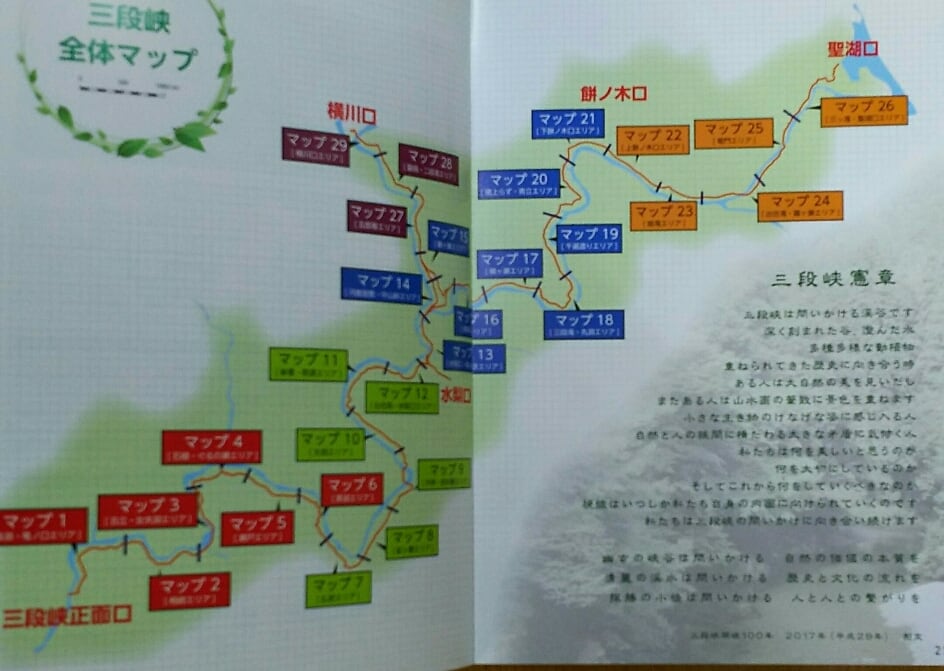 三段峡
全体マップ
横川口
餅ノ木口
聖湖口
マップ 29
[横川口エリア]
マップ 28
マップ 27
マップ 15
マップ 14
マップ 16
マップ 13
マップ 21
[下餅ノ木口エリア]
マップ 22
[上餅ノ木口エリア]
マップ 25
[竜門エリア]
マップ 26
[三ッ滝・聖湖口エリア]
マップ 20
マップ 19
マップ 17
マップ 18
[三段滝・丸渕エリア]
マップ 23
マップ 24
マップ 11
マップ 12
水梨口
マップ 10
マップ 9
マップ 4
マップ 6
マップ 3
マップ 5
マップ 1
マップ 2
マップ 8
マップ 7
三段峡正面口
三段峡憲章
三段峡は問いかける渓谷です
深く刻まれた谷、澄んだ水
多種多様な動植物
重ねられてきた歴史に向き合う時
ある人は大自然の美を見いだし
またある人は山水画の筆致に景色を重ねます
小さな生き物のけなげな姿に感じ入る人
自然と人の狭間に横たわる大きな矛盾に気付く人
私たちは何を美しいと思うのか
何を大切にしているのか
そしてこれから何をしていくべきなのか
視線はいつしか私たち自身の内面に向けられていくのです
私たちは三段峡の問いかけに向き合い続けます
幽玄の峡谷は問いかける 自然の価値の本質を
清麗の渓水は問いかける 歴史と文化の流れを
探勝の小径は問いかける 人と人との繋がりを
三段峡開峡100年 2017年(平成29年)
2